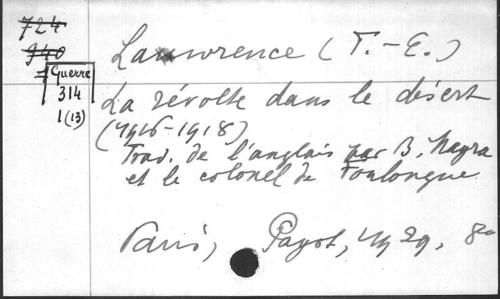 724
940
Guerre
314
1(13)
Lawrence (T.-E.)
La révolte dans le désert
(1916-1918)
Trad. de l'anglais par B. Mayra
et le colonel de Fonlongue
Paris, Payot, 1929, 8º